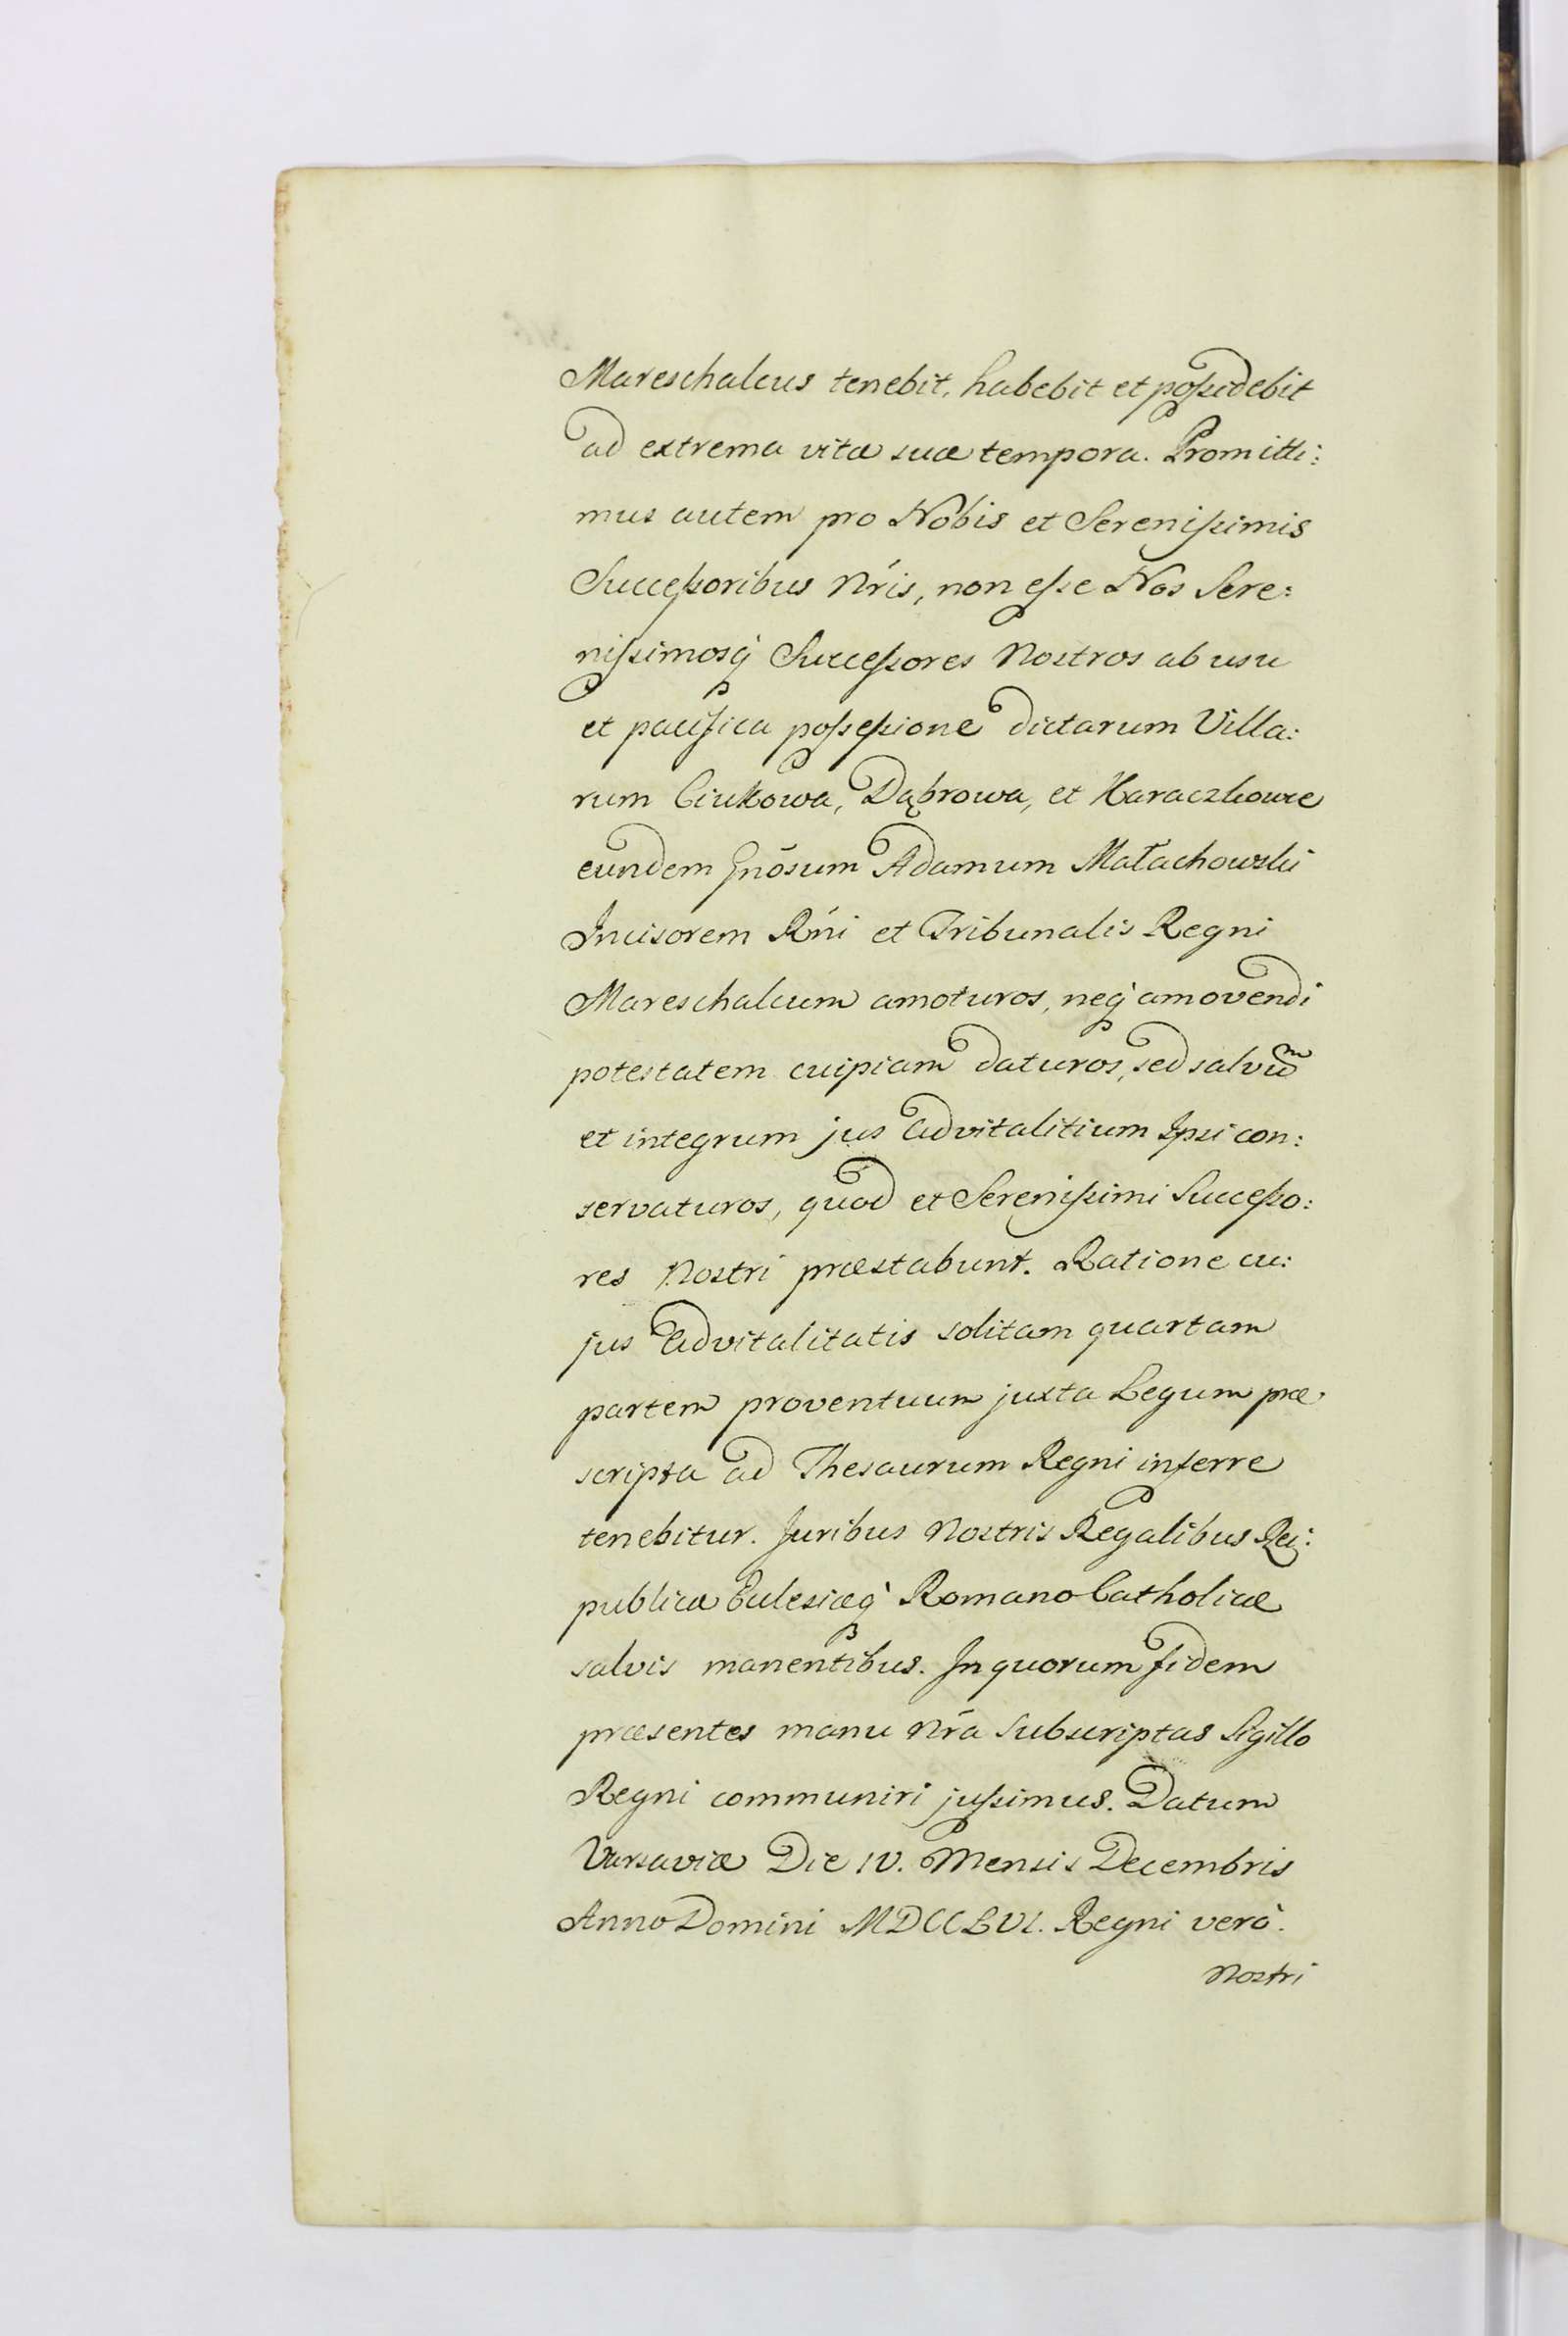 Mareschalcus tenebit, habebit et poſsidebit
ad extrema vitæ suæ tempora. Promitti:
mus autem pro Nobis et Sereniſsimis
Succeſsoribus Nŕis, non eſse Nos Sere:
niſsimosq́ Succeſsores Nostros ab usu
et pacifica poſseſsione dictarum Villa:
rum Ciukowa, Dąbrowa, et Karaczkowce
eundem Gnōsum Adamum Małachowski
Incisorem Rńi et Tribunalis Regni
Mareschalcum amoturos, neq́ amovendi
potestatem cuipiam daturos, sed salvūm
et integrum jus advitalitium Ipsi con:
servaturos, quod et Sereniſsimi Succeſso:
res Nostri præstabunt. Ratione cu:
jus advitalitatis solitam quartam
partem proventuum juxta Legum præ
scripta ad Thesaurum Regni inferre
tenebitur. Juribus Nostris Regalibus Rei:
publicæ Ecclesiæq́ Romano Catholicæ
salvis manentibus. In quorum fidem
præsentes manu Nŕa subscriptas Sigillo
Regni communiri juſsimus. Datum
Varsaviæ Die IV. Mensis Decembris
Anno Domini MDCCLVI. Regni verò.
Nostri